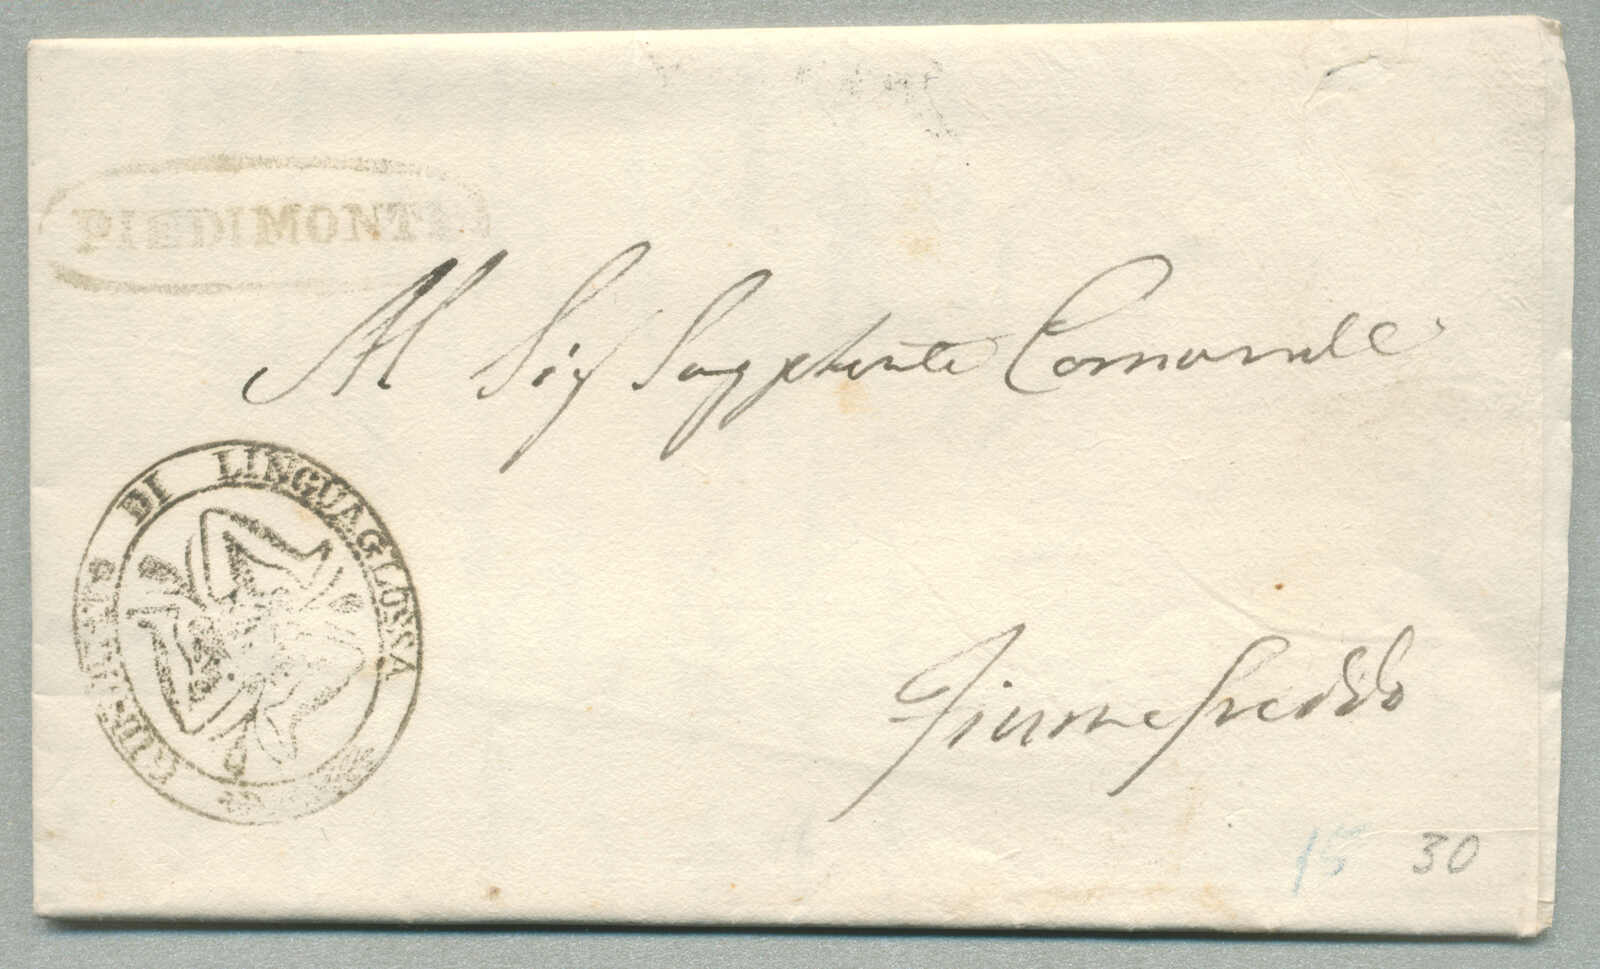 PIEDIMONTE
Al Sig Supplente Comunale
GIUDICATO DI LINGUAGLOSSA
Fiumefreddo
15 30